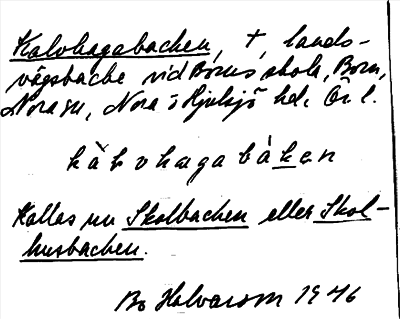 Kalvhagabacken, †, lands-
vägsbacke vid Borns skola, Born,
Nora sn, Nora o Hjulsjö hd. Ör l.
kàlvhagabàken
Kallas nu Skolbacken eller Skol-
husbacken.
Bo Halvarson 1946